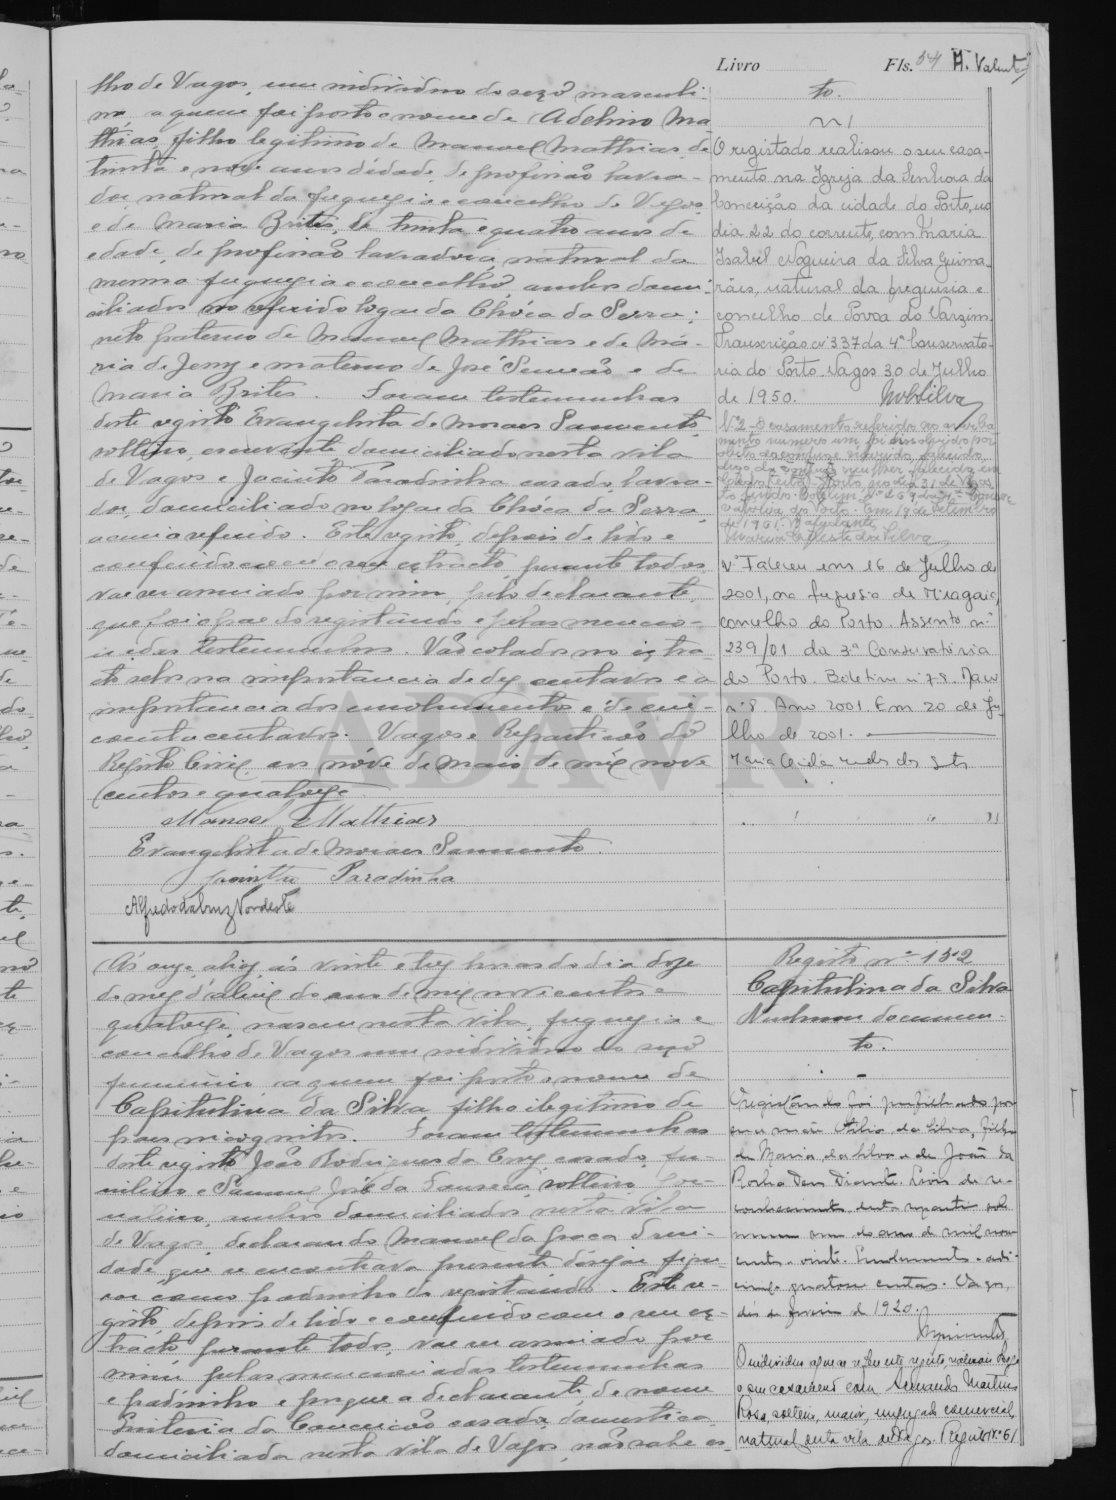 Livro Fls. 54 A. Valente
lho de Vagos, um individuo do sexo masculi-
no, a quem foi posto o nome de Adelino Ma
thias, filho legitimo de Manoel Mathias, de
trinta e nove anos d'edade, de profissão lavra-
dor natural da freguezia e concelho de Vagos
e de Maria Brites, de trinta e quatro anos de
edade, de profissão lavradora, natural da
mesma freguezia e concelho, ambos domi-
ciliados no referido logar da Chóca da Serra;
neto paterno de Manoel Mathias e de Ma-
ria de Jesus e materno de José Simeão e de
Maria Brites. Foram testemunhas
deste registo Evangelista de Moraes Sarmento,
solteiro, escrevente, domiciliado nesta vila
de Vagos e Jacinto Paradinha casado, lavra-
dor, domiciliado no logar da Chóca da Serra,
acima referido. Este registo, depois de lido e
conferido com o seu extracto, perante todos,
vae ser assinado por mim, pelo declarante,
que foi o pae do registando e pelas mencio-
nadas testemunhas. Vão colados no extra-
cto selos na importancia de dez centavos e a
importancia dos emolumentos é de cin-
coenta centavos. Vagos e Repartição do
Registo Civil, aos nóve de Maio de mil nove
centos e quatorze
Manoel Mathias
Evangelista de Moraes Sarmento.
Jacinto Paradinha
Alfredo da Cruz Nordeste
to.
N 1
O registado realisou o seu casa-
mento na Igreja da Senhora da
Conceição da cidade do Porto, no
dia 22 do corrente, com Maria
Isabel Nogueira da Silva Guima-
rães, natural da freguesia e
concelho de Povoa do Varzim.
Transcrição nº 337 da 4ª Conservato-
ria do Porto. Vagos 30 de Julho
de 1950.
Nº 2 - O casamento referido no averba
mento numero um foi dissolvido por
obito
do Porto. Em 18 de Setembro
de 1961. O ajudante,
Maria Celeste da Silva
Nº Faleceu em 16 de Julho de
2001, na freguesia de Miragaia,
concelho do Porto. Assento nº
239/01 da 3ª Conservatória
do Porto. Boletim nº 78. Maço
nº 8. Ano 2001. Em 20 de Ju-
lho de 2001.
ADAVR
Ás onze, aliás, ás vinte e tres horas do dia doze
do mez d'abril do ano de mil nove centos e
quatorze, nasceu nesta vila, freguezia e
concelho de Vagos um individuo do sexo
feminino a quem foi posto o nome de
Capitulina da Silva, filho ilegitimo de
paes incognitos. Foram testemunhas
deste registo João Rodrigues da Cruz, casado, fu-
nileiro e Samuel José da Fonseca, solteiro,
ambos domiciliados nesta vila
de Vagos, declarando Manoel da Graça Trin-
dade, que se encontrava presente desejar figu-
rar como padrinho do registando. Este re-
gisto, depois de lido e conferido com o seu ex-
tracto, perante todos, vae ser assinado por
mim pelas mencionadas testemunhas
e padrinho e porque a declarante, de nome
da Conceição casada, domestica
domiciliada nesta vila de Vagos, não sabe es
Registo nº 152
Capitulina da Silva
Nenhum documen-
to.
O registando foi perfilhado por
sua mãe da Silva, filha
de Maria da Silva e de João da
Rocha Deus Diante. Livro de re-
conhecimento desta reparti sob
numero um do ano de mil nove
centos e vinte. Emolumentos
quatorze centavos. Vagos,
dez de Janeiro de 1920.
O individuo a quem se refere este registo realizou hoje
o seu casamento com Armando Martins
Rosa, solteiro, maior, empregado comercial,
natural desta vila de Vagos. Registo nº 61